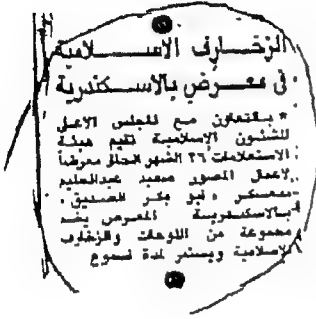 الزخـارف الاسـلامية
فى معـرض بالاسـكندرية
* بـالتعاون مـع المجلس الاعلى
للشئون الإسلامية تقيم هيئة
الاستعلامات ٢٦ الشهر الحالى معرضاً
لاعمال المصور سعيد عبدالعليم
بمعسكر « ابو بكر الصديق »
بـالاسكندريـة المعرض يضـم
مجموعة من اللوحات والزخارف
الاسلامية ويستمر لمدة اسبوع